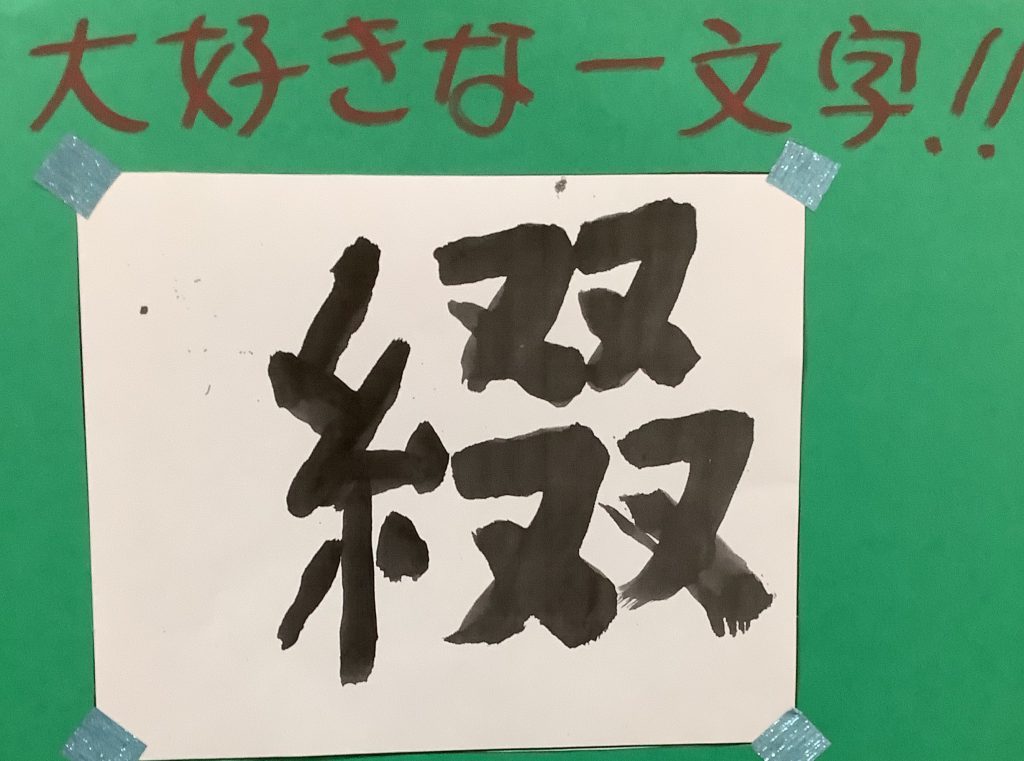 大好きな一文字!!
綴